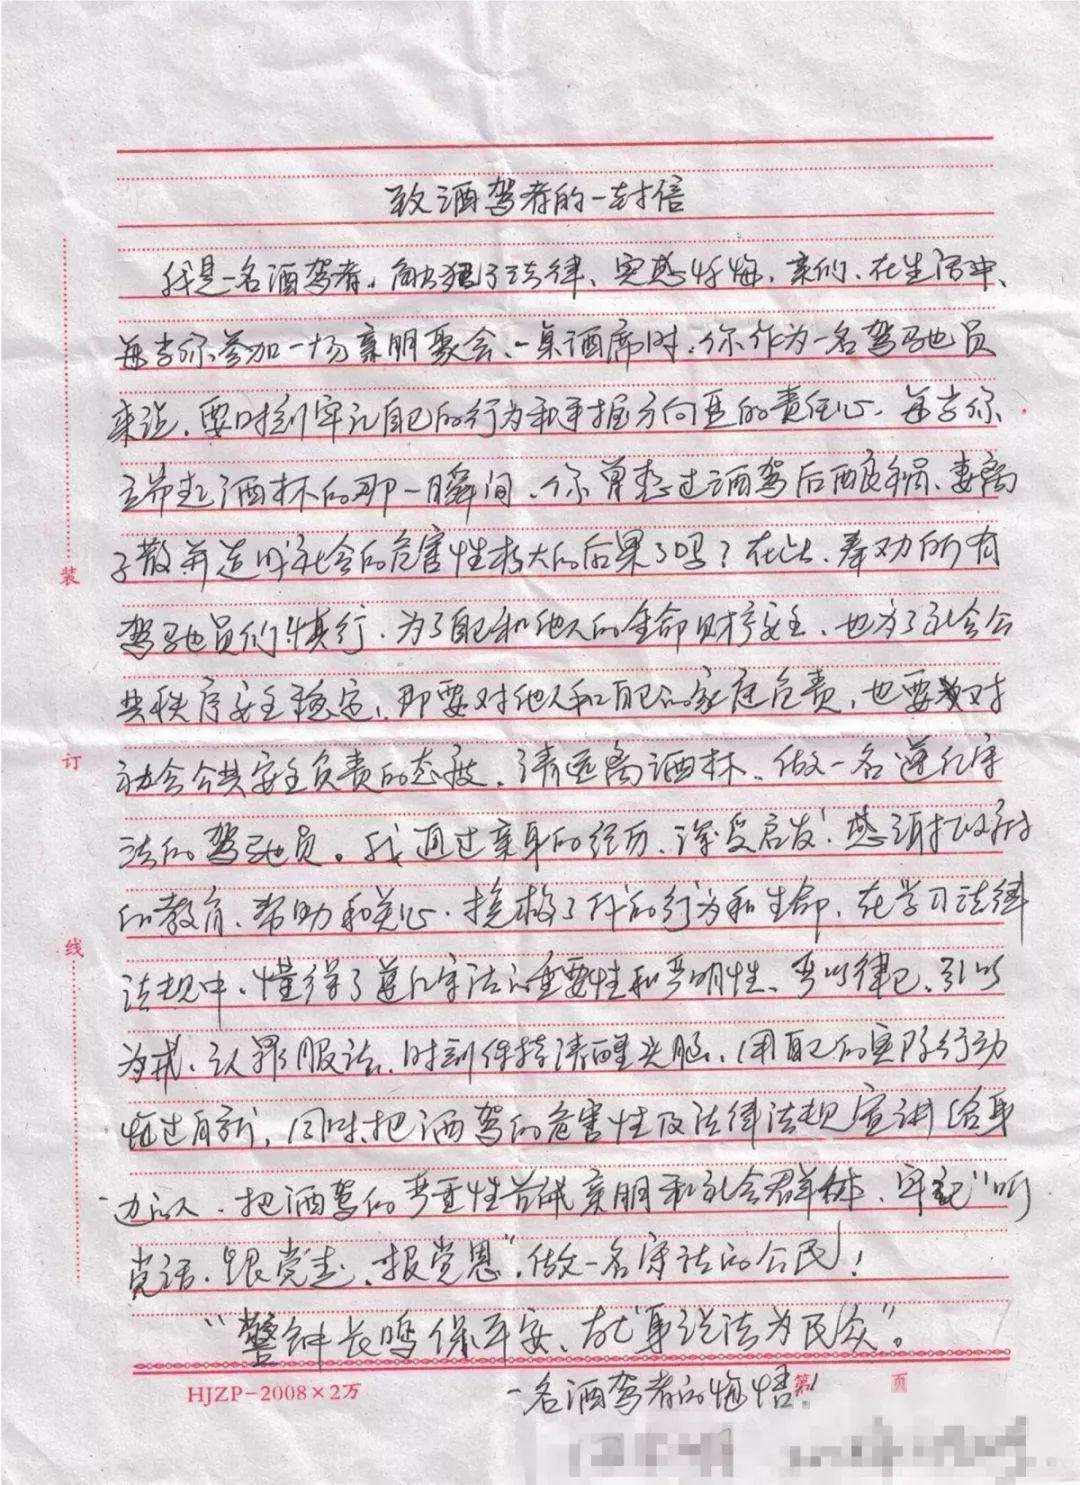 致酒驾者的一封信
我是一名酒驾者，触犯了法律、实感忏悔，亲们、在生活中、
每当你参加一场亲朋聚会、一桌酒席时，你作为一名驾驶员
来说，要时刻牢记自己的行为和掌握方向盘的责任心，每当你
端起酒杯的那一瞬间，你曾想过酒驾后酿祸、妻离
子散并造成社会的危害性极大的后果了吗？在此、奉劝所有
驾驶员们慎行，为了自己和他人的生命财产安全、也为了社会公
共秩序安全稳定，即要对他人和自己的家庭负责，也要对
社会公共安全负责的态度，请远离酒杯、做一名遵纪守
法的驾驶员。我通过亲身的经历、深受启发！感谢政府
的教育、帮助和关心，挽救了我的行为和生命，在学习法律
法规中，懂得了遵纪守法的重要性和严明性、严以律己、引以
为戒、认罪服法、时刻保持清醒头脑、用自己的实际行动
悔过自新，同时、把酒驾的危害性及法律法规宣讲给身
边的人，把酒驾的严重性告诫亲朋和社会群体、牢记“听
党话、跟党走、报党恩”，做一名守法的公民！
“警钟长鸣保平安、现身说法为民众”。
一名酒驾者的悔悟！
装
订
线
HJZP-2008×2万
第 页